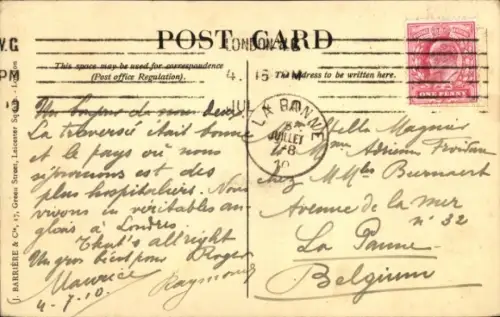 POST CARD
LONDON. W.C
4. 15 PM
JUL
W.C
PM
This space may be used for correspondence
(Post office Regulation).
The address to be written here.
ONE PENNY
LA PANNE
JUILLET
7-8
10
J. BARRIÈRE & Cie, 17, Green Street, Leicester Square - London.
Un bonjour de nous deux.
La traversée était bonne
et le pays où nous
séjournons est des
plus hospitaliers. Nous
vivons en véritables an-
glais à Londres
That's all right
Un gros bient pour Roger
Maurice Raymond
4-7.10.
Stella Magnier
Mme Adrien
chez M Mles Beernaert
Avenue de la mer
n° 32
La Panne
Belgium